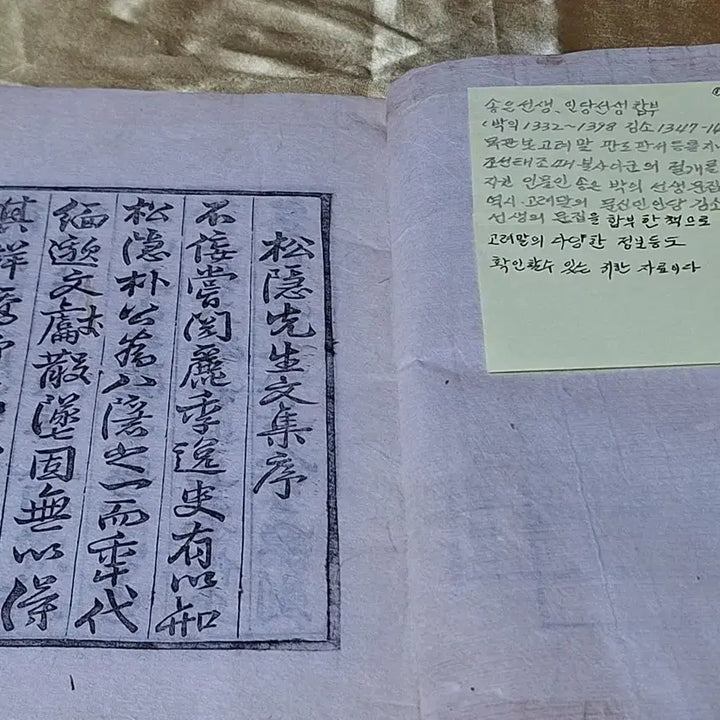 松隱先生文集序
不佞嘗閱麗季逸史有以知
松隱朴公爲八隱之一而年代
緬邈文獻散墜固無以得
其詳
송은선생, 인당선생 합부
박익 1332~1398 김소 1347-14
조선태조 때 불사이군의 절개를
지킨 인물인 송은 박익 선생 문집
역시 고려말의 문신인 인당 김소
선생의 문집을 합부한 책으로
고려말의 다양한 정보등도
확인할수 있는 귀한 자료이다